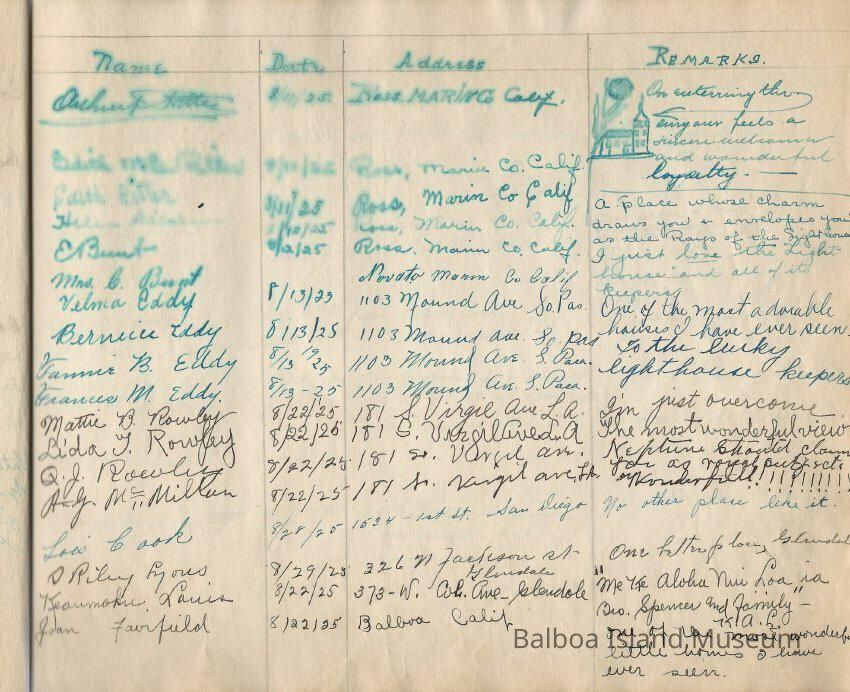 Name Date Address REMARKS.
8/11/25 Ross. MARIN Co Calif. On entering the
feels a
sincere welcome
and wonderful
loyalty. —
Ross, Marin Co. Calif.
Edith Ritter 8/11/25 Ross, Marin Co Calif A place whose charm
Helen 8/12/25 Ross, Marin Co. Calif. draws you & envelopes you
as the Rays of the Lighthouse
E Bunt 8/2/25 Ross. Marin Co. Calif. I just love the Light
Mrs C. Bunt Novato Marin Co Calif house and all of its
keepers
Velma Eddy 8/13/25 1103 Mound Ave So. Pas. One of the most adorable
houses I have ever seen.
Berneice Eddy 8/13/25 1103 Mound ave. So. Pas To the lucky
Fannie B. Eddy 8/13 25 1103 Mound Ave. S. Pasa. lighthouse keepers
Frances M. Eddy. 8/13-25 1103 Mound Av. S. Pasa.
Mattie B. Rowley 8/22/25 181 S. Virgil Ave L.A. I'm just overcome
Lida T. Rowley 8/22/25 181 S. Virgil Ave L.A The most wonderful view
Q. J. Rowley 8/22/25 181 so. Virgil av. Neptune should claim
A. G. McMillan 8/22/25 181 so. Virgil ave, LA Wonderful!!!!!!!!!!
Lois Cook 8/28/25 1534-1st St. San Diego No other place like it.
S Riley Lyons 8/29/25 326 N Jackson st One better place, Glendale
Glendale
Louis 8/22/25 373-W. Ave Glendale "Me Ke Aloha Nui Loa ia
Bro. Spencer and family—
K. A. L.
Joan Fairfield 8/22/25 Balboa Calif one of the most wonderful
little homes I have
ever seen.
Balboa Island Museum